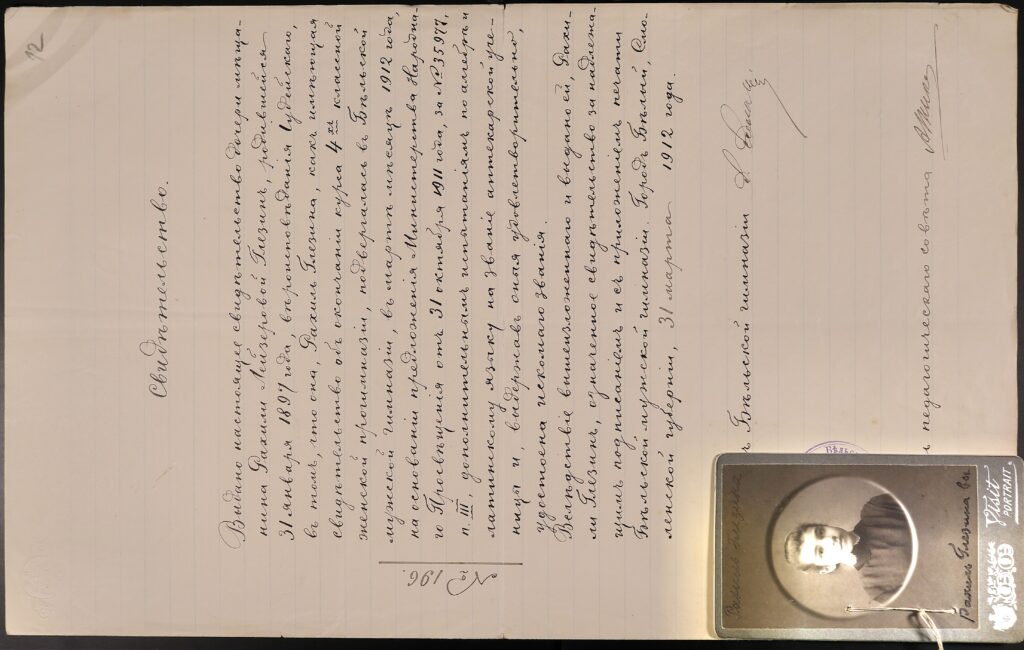 12
Свидѣтельство.
Выдано настоящее свидѣтельство дочери мѣща-
нина Рахили Лейзеровой Глезинъ, родившейся
31 января 1897 года, вѣроисповѣданія Іудейскаго,
въ томъ, что она, Рахиль Глезина, какъ имѣющая
свидѣтельство объ окончаніи курса 4хъ классной
женской прогимназіи, подвергалась въ Бѣльской
мужской гимназіи, въ мартѣ мѣсяцѣ 1912 года,
на основаніи предложенія Министерства Народна-
го Просвѣщенія отъ 31 октября 1911 года, за № 35977,
п. III, дополнительнымъ испытаніямъ по алгебрѣ и
латинскому языку на званіе аптекарской уче-
ницы и, выдержавъ оная удовлетворительно,
удостоена искомаго званія.
Вслѣдствіе вышеизложеннаго и выдано ей, Рахи-
ли Глезинъ, означенное свидѣтельство за надлежа-
щимъ подписаніемъ и съ приложеніемъ печати
Бѣльской мужской гимназіи. Городъ Бѣлый, Смо-
ленской губерніи, 31 марта 1912 года.
№ 196.
Бѣльской гимназіи
педагогическаго совѣта
Рахиль Глезина
Рахиль Глезина
Visit
PORTRAIT.